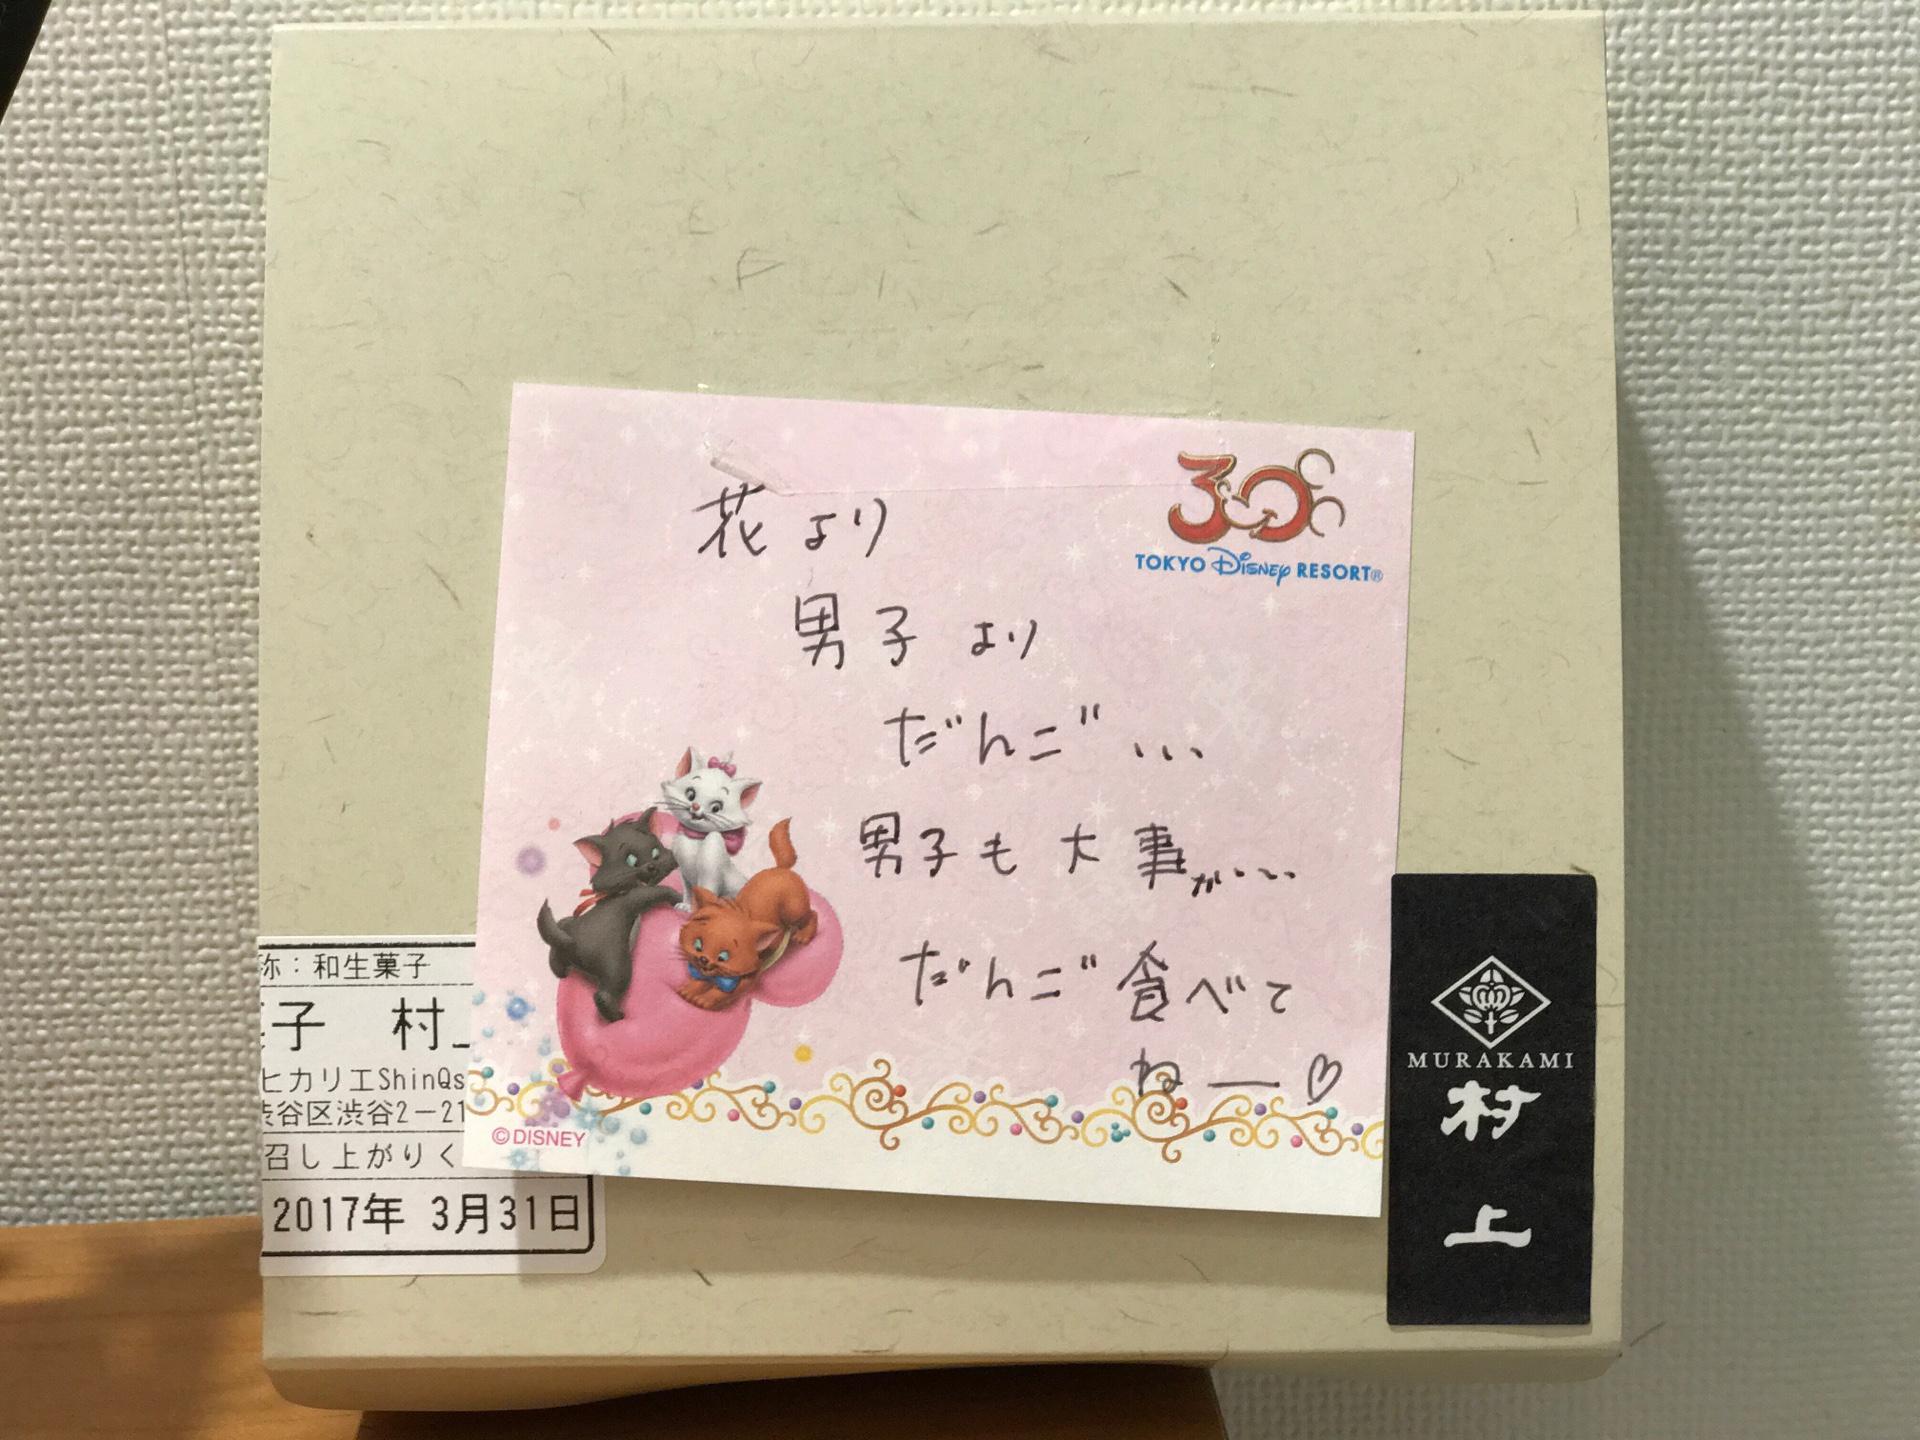 花より
男子より
だんご...
男子も大事が...
だんご食べて
ねー♡
30
TOKYO Disney RESORT®
©DISNEY
称：和生菓子
菓子 村上
ヒカリエShinQs
渋谷区渋谷2-21
召し上がりく
2017年 3月31日
MURAKAMI
村上